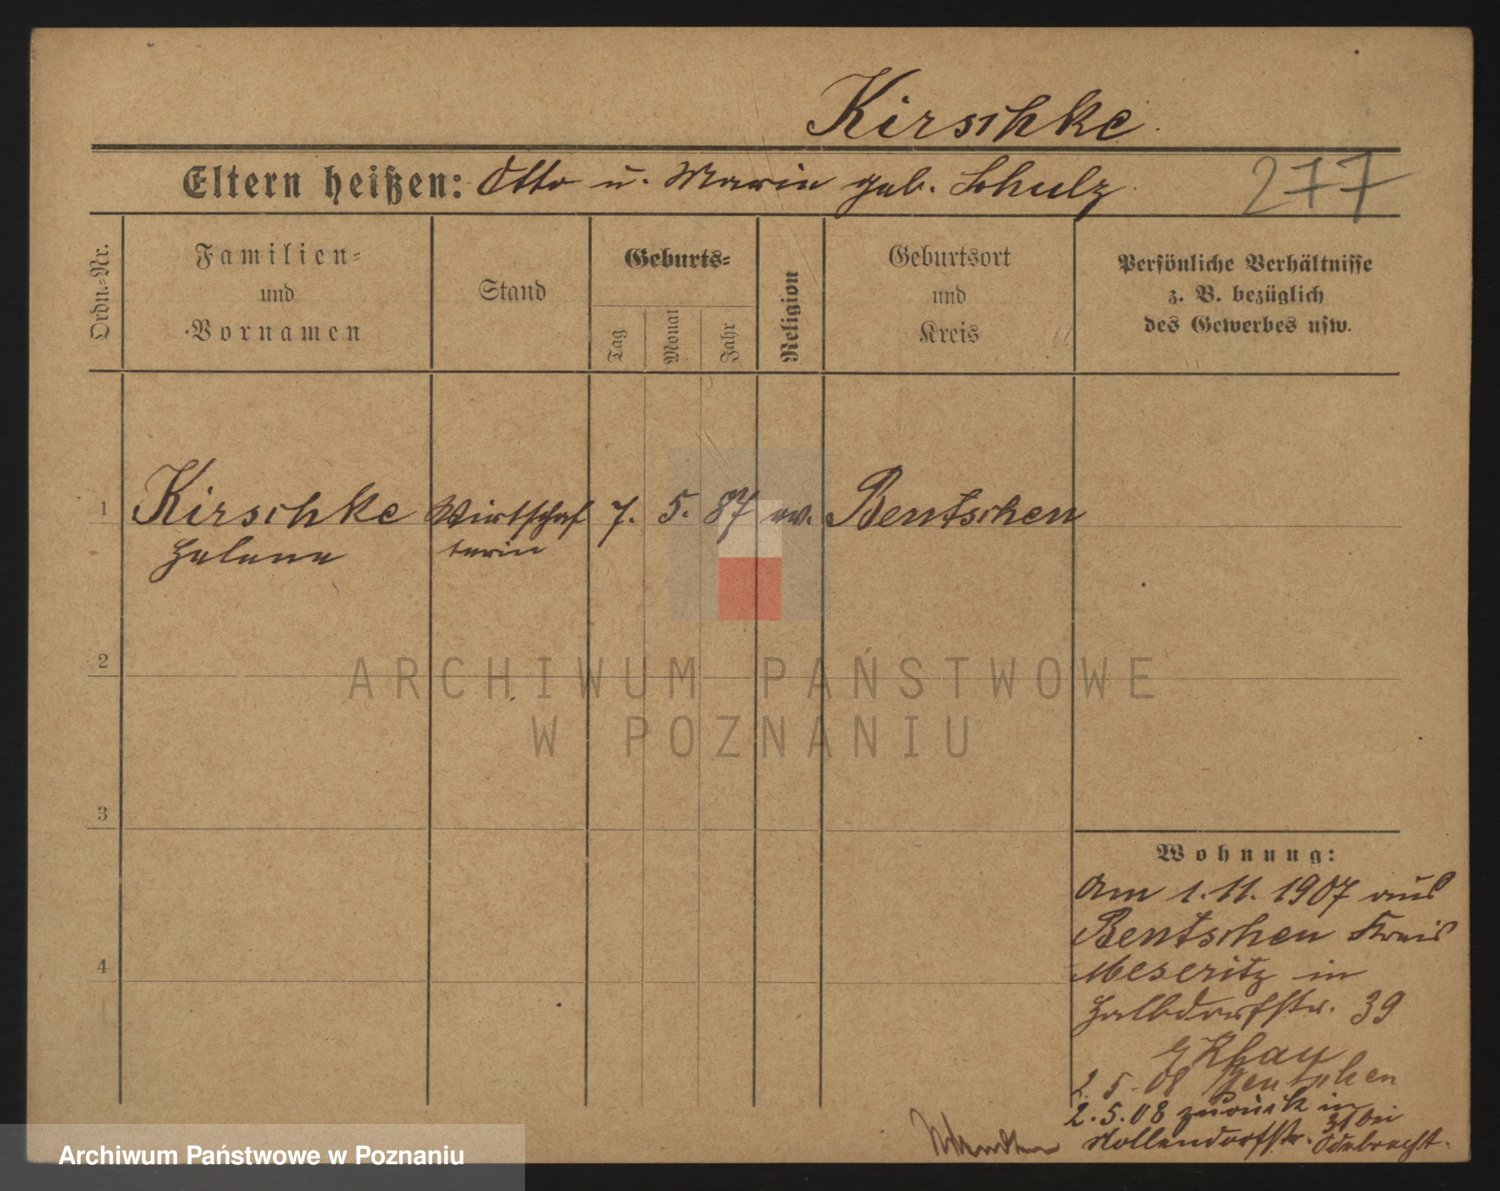 Kirschke.
Eltern heißen: Otto u. Marie geb. Schulz. 277
Ordn.-Nr.
Familien-
und
Vornamen
Stand
Geburts-
Tag
Monat
Jahr
Religion
Geburtsort
und
Kreis
Persönliche Verhältnisse
z. B. bezüglich
des Gewerbes usw.
1 Kirschke Wirtschaf 7. 5. 87 ev. Bentschen
Helene terin
2
3
4
Wohnung:
Am 1. 11. 1907 aus
Bentschen Kreis
Meseritz in
Halbdorfstr. 39
2. 5. 08 Bentschen
2. 5. 08 zurück in
Hollendorfstr. 31 bei
ARCHIWUM PAŃSTWOWE
W POZNANIU
Archiwum Państwowe w Poznaniu